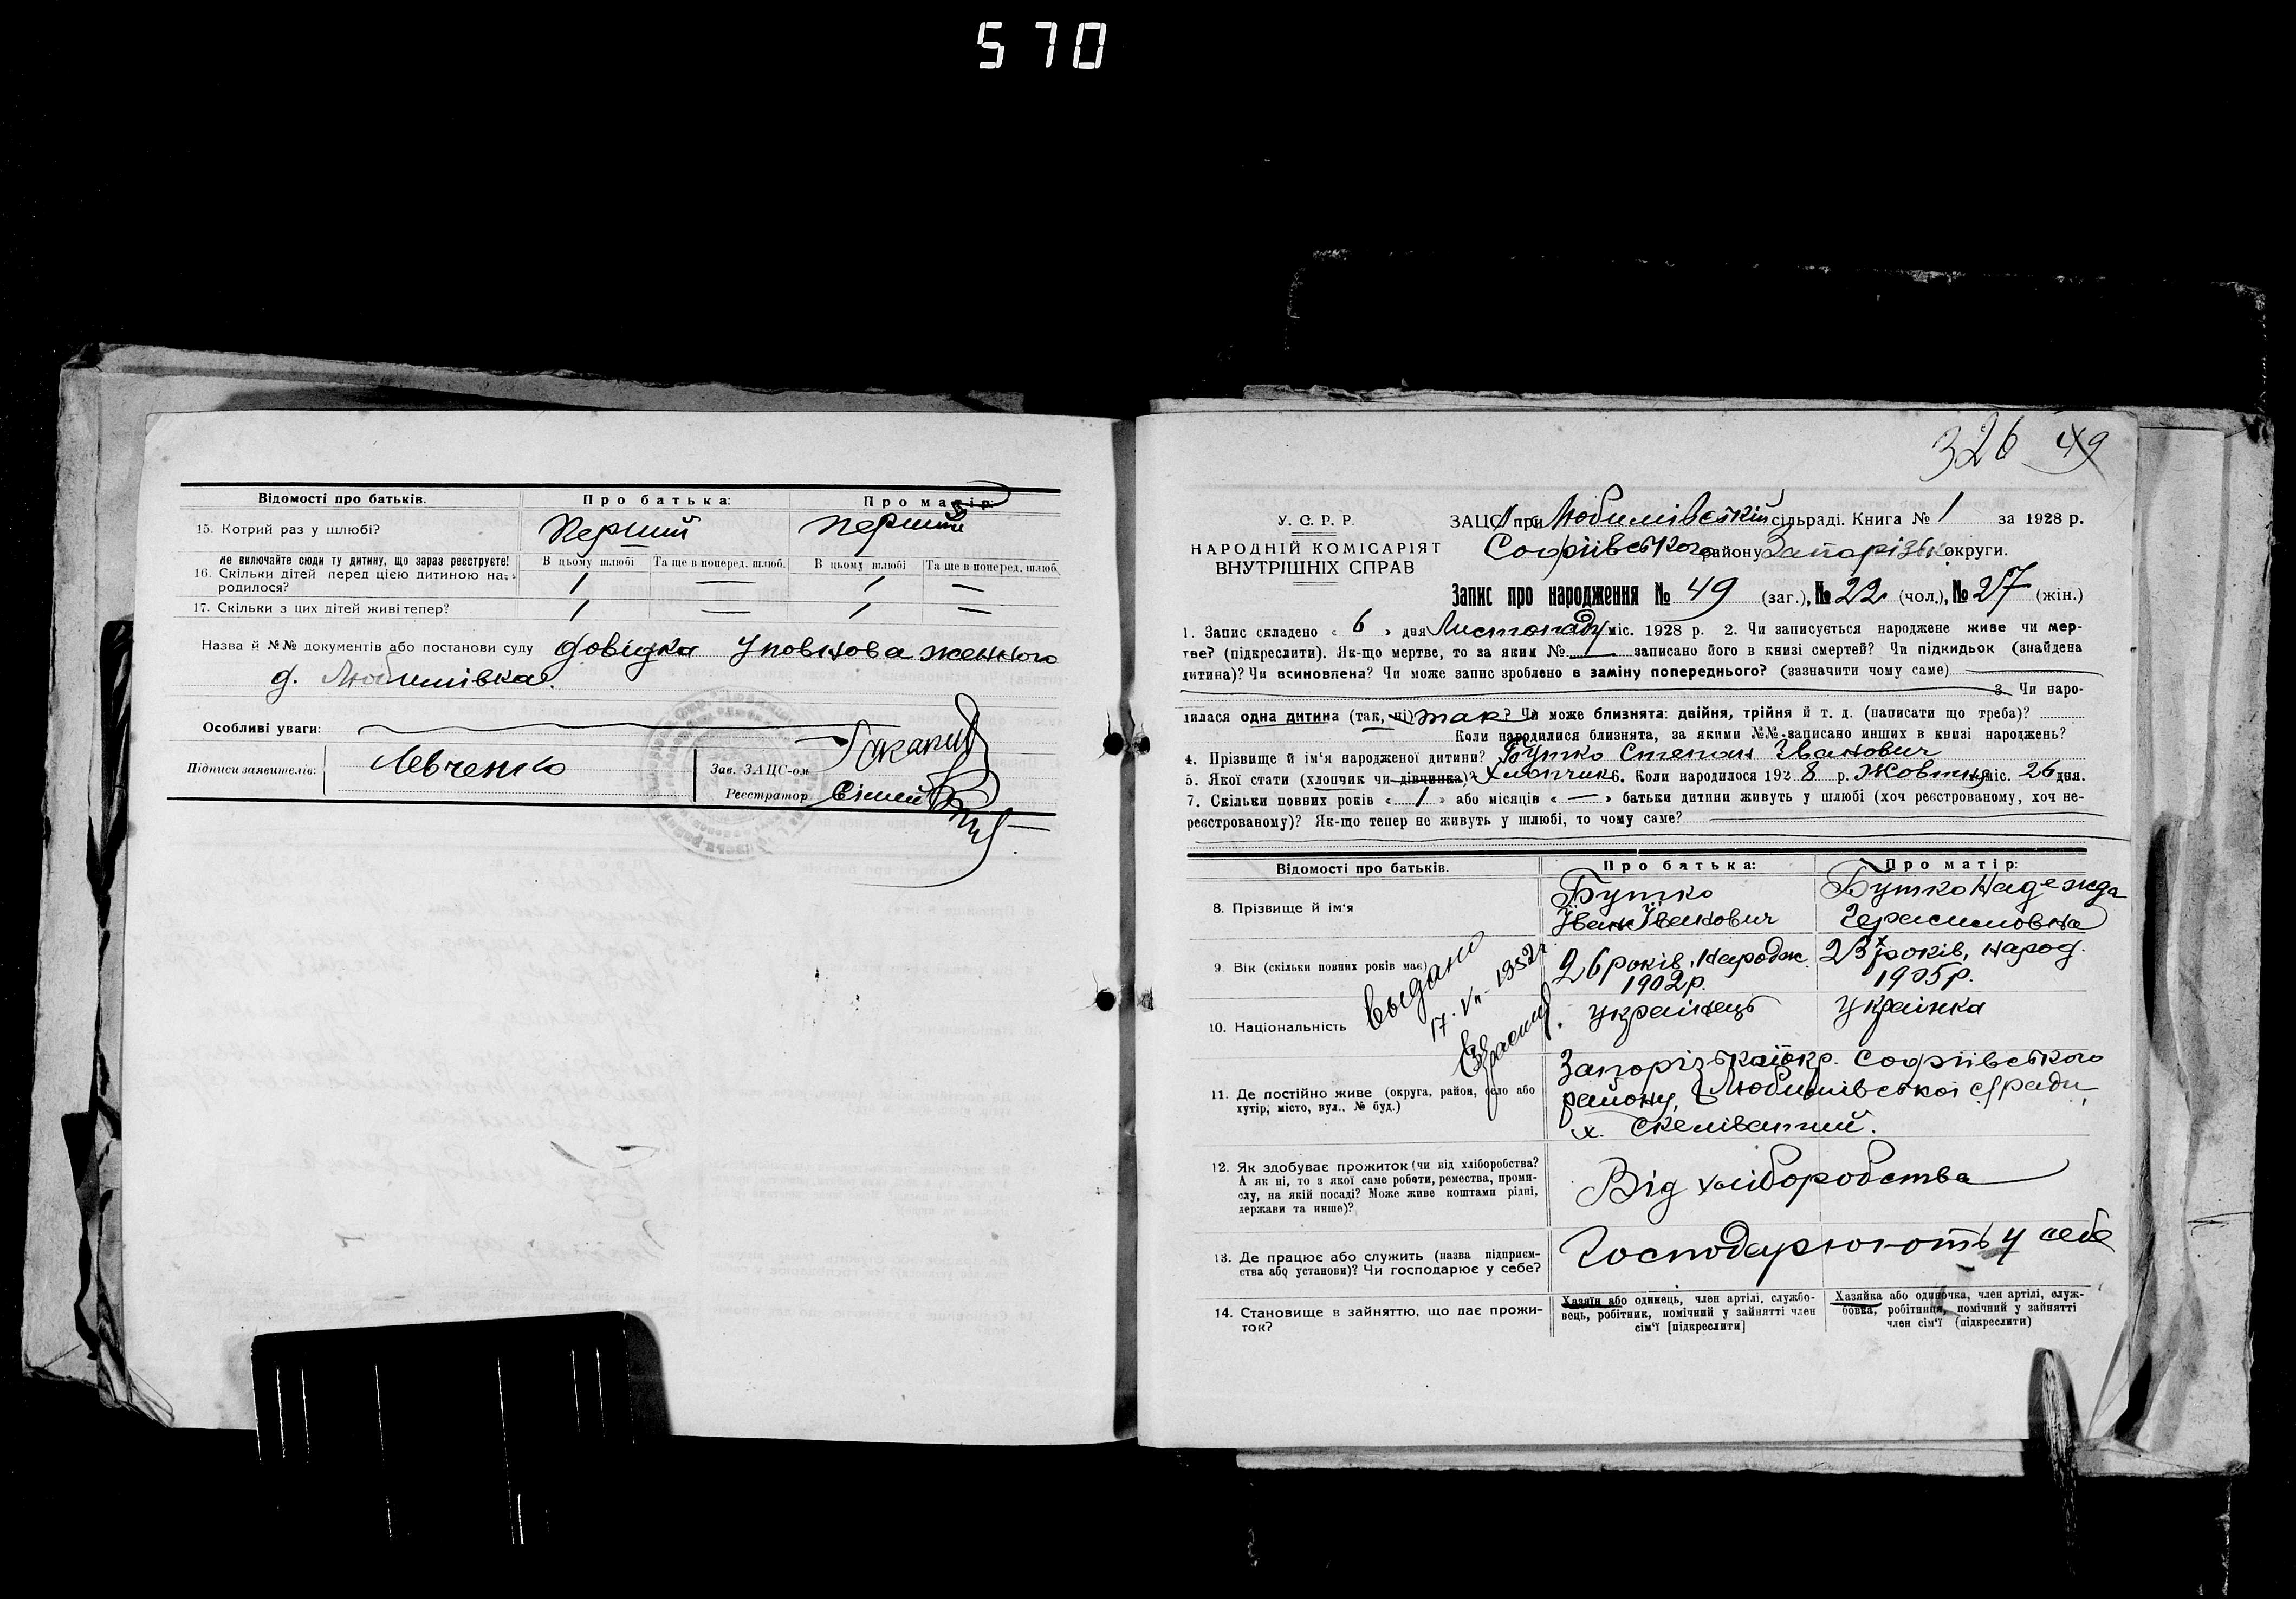 570
Відомості про батьків. Про батька: Про матір:
15. Котрий раз у шлюбі? Перший перший
Не включайте сюди ту дитину, що зараз реєструєте! В цьому шлюбі Та ще в поперед. шлюб. В цьому шлюбі Та ще в поперед. шлюб.
16. Скільки дітей перед цією дитиною народилося? 1 — 1 —
17. Скільки з цих дітей живі тепер? 1 — 1 —
Назва й №№ документів або постанови суду довідка уповноваженного
д. Любимівка.
Особливі уваги:
Підписи заявителів: Левченко Зав. ЗАЦС-ом
Реєстратор
326 49
У. С. Р. Р.
НАРОДНІЙ КОМІСАРІЯТ
ВНУТРІШНІХ СПРАВ
ЗАЦС при Любимівській сільраді. Книга № 1 за 1928 р.
Софіївського району Запорізьк округи.
Запис про народження № 49 (заг.), № 22 (чол.), № 27 (жін.)
1. Запис складено « 6 » дня Листопаду міс. 1928 р. 2. Чи записується народжене живе чи мер-
тве? (підкреслити). Як-що мертве, то за яким № записано його в книзі смертей? Чи підкидьок (знайдена
дитина)? Чи всиновлена? Чи може запис зроблено в заміну попереднього? (зазначити чому саме)
3. Чи наро-
дилася одна дитина (так, ні) так? Чи може близнята: двійня, трійня й т. д. (написати що треба)?
Коли народилися близнята, за якими №№ записано инших в книзі народжень?
4. Прізвище й ім'я народженої дитини? Бутко Степан Іванович
5. Якої статі (хлопчик чи дівчинка)? Хлопчик 6. Коли народилося 1928 р. Жовтня міс. 26 дня.
7. Скільки повних років « 1 » або місяців « — » батьки дитини живуть у шлюбі (хоч реєстрованому, хоч не-
реєстрованому)? Як-що тепер не живуть у шлюбі, то чому саме?
Відомості про батьків. Про батька: Про матір:
8. Прізвище й ім'я Бутко Іван Іванович Бутко Надежда Герасимовна
9. Вік (скільки повних років має) 26 років, народж. 1902 р. 23 років, народ. 1905 р.
выдано
17. VII - 1952 г.
10. Національність українець українка
11. Де постійно живе (округа, район, село або
хутір, місто, вул., № буд.)
Запорізькаї окр. Софіївського
району, Любимівської с/ради,
х. Скеліватий.
12. Як здобуває прожиток (чи від хліборобства?
А як ні, то з якої саме роботи, ремества, проми-
слу, на якій посаді? Може живе коштами рідні,
держави та инше)?
Від хліборобства
13. Де працює або служить (назва підприєм-
ства або установи)? Чи господарює у себе?
Господарюють у себе
14. Становище в зайняттю, що дає прожи-
ток?
Хазяїн або одинець, член артілі, службо-
вець, робітник, помічний у зайнятті член
сім'ї [підкреслити]
Хазяйка або одиночка, член артілі, служ-
бовка, робітниця, помічний у зайнятті
член сім'ї (підкреслити)